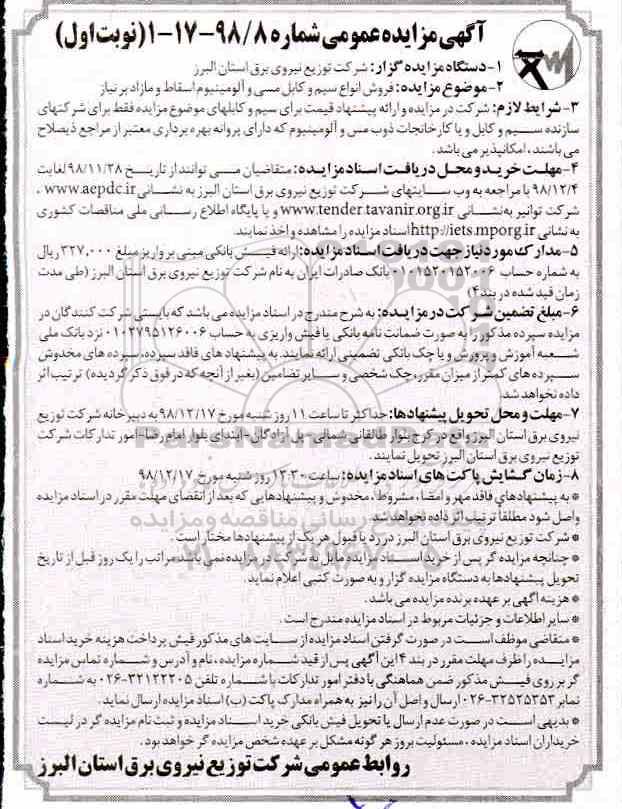 آگهی مزایده عمومی شماره ۹۸/۸-۱۷-۱ (نوبت اول)
۱-دستگاه مزایده گزار: شرکت توزیع نیروی برق استان البرز
۲-موضوع مزایده: فروش انواع سیم و کابل مسی و آلومینیوم اسقاط و مازاد بر نیاز
۳-شرایط لازم: شرکت در مزایده و ارائه پیشنهاد قیمت برای سیم و کابلهای موضوع مزایده فقط برای شرکتهای
سازنده سیم و کابل و یا کارخانجات ذوب مس و آلومینیوم که دارای پروانه بهره برداری معتبر از مراجع ذیصلاح
می باشند، امکانپذیر می باشد.
۴-مهلت خرید و محل دریافت اسناد مزایده: متقاضیان می توانند از تاریخ ۹۸/۱۱/۲۸ لغایت
۹۸/۱۲/۴ با مراجعه به وب سایتهای شرکت توزیع نیروی برق استان البرز به نشانی www.aepdc.ir ،
شرکت توانیر به نشانی www.tender.tavanir.org.ir و یا پایگاه اطلاع رسانی ملی مناقصات کشوری
به نشانی http://iets.mporg.ir اسناد مزایده را مشاهده و اخذ نمایند.
۵-مدارک مورد نیاز جهت دریافت اسناد مزایده: ارائه فیش بانکی مبنی بر واریز مبلغ ۳۲۷,۰۰۰ ریال
به شماره حساب ۰۱۰۱۵۲۰۱۵۲۰۰۶ بانک صادرات ایران به نام شرکت توزیع نیروی برق استان البرز (طی مدت
زمان قید شده در بند ۴)
۶-مبلغ تضمین شرکت در مزایده: به شرح مندرج در اسناد مزایده می باشد که بایستی شرکت کنندگان در
مزایده سپرده مذکور را به صورت ضمانت نامه بانکی یا فیش واریزی به حساب ۰۱۰۲۷۹۵۱۲۶۰۰۶ نزد بانک ملی
شعبه آموزش و پرورش و یا چک بانکی تضمینی ارائه نمایند. به پیشنهاد های فاقد سپرده، سپرده های مخدوش
سپرده های کمتر از میزان مقرر، چک شخصی و سایر تضامین (بغیر از آنچه که در فوق ذکر گردیده) ترتیب اثر
داده نخواهد شد.
۷-مهلت و محل تحویل پیشنهادها: حداکثر تا ساعت ۱۱ روز شنبه مورخ ۹۸/۱۲/۱۷ به دبیرخانه شرکت توزیع
نیروی برق استان البرز واقع در کرج-بلوار طالقانی شمالی-پل آزادگان-ابتدای بلوار امام رضا-امور تدارکات شرکت
توزیع نیروی برق استان البرز تحویل نمایند.
۸-زمان گشایش پاکت های اسناد مزایده: ساعت ۱۳:۳۰ روز شنبه مورخ ۹۸/۱۲/۱۷
* به پیشنهادهای فاقد مهر و امضا، مشروط، مخدوش و پیشنهادهایی که بعد از انقضای مهلت مقرر در اسناد مزایده
واصل شود مطلقا ترتیب اثر داده نخواهد شد.
* شرکت توزیع نیروی برق استان البرز در رد یا قبول هر یک از پیشنهادها مختار است.
* چنانچه مزایده گر پس از خرید اسناد مزایده مایل به شرکت در مزایده نمی باشد، مراتب را یک روز قبل از تاریخ
تحویل پیشنهادها به دستگاه مزایده گزار و به صورت کتبی اعلام نماید.
* هزینه آگهی بر عهده برنده مزایده می باشد.
* سایر اطلاعات و جزئیات مربوط در اسناد مزایده مندرج است.
* متقاضی موظف است در صورت گرفتن اسناد مزایده از سایت های مذکور فیش پرداخت هزینه خرید اسناد
مزایده را ظرف مهلت مقرر در بند ۴ این آگهی پس از قید شماره مزایده، نام و آدرس و شماره تماس مزایده
گر بر روی فیش مذکور ضمن هماهنگی با دفتر امور تدارکات با شماره تلفن ۳۲۱۲۲۲۰۵-۰۲۶ به شماره
نمابر ۳۲۵۲۵۳۵۳-۰۲۶ ارسال و اصل آن را نیز به همراه مدارک پاکت (ب) اسناد مزایده ارسال نماید.
* بدیهی است در صورت عدم ارسال یا تحویل فیش بانکی خرید اسناد مزایده و ثبت نام مزایده گر در لیست
خریداران اسناد مزایده ، مسئولیت بروز هر گونه مشکل بر عهده شخص مزایده گر خواهد بود.
روابط عمومی شرکت توزیع نیروی برق استان البرز